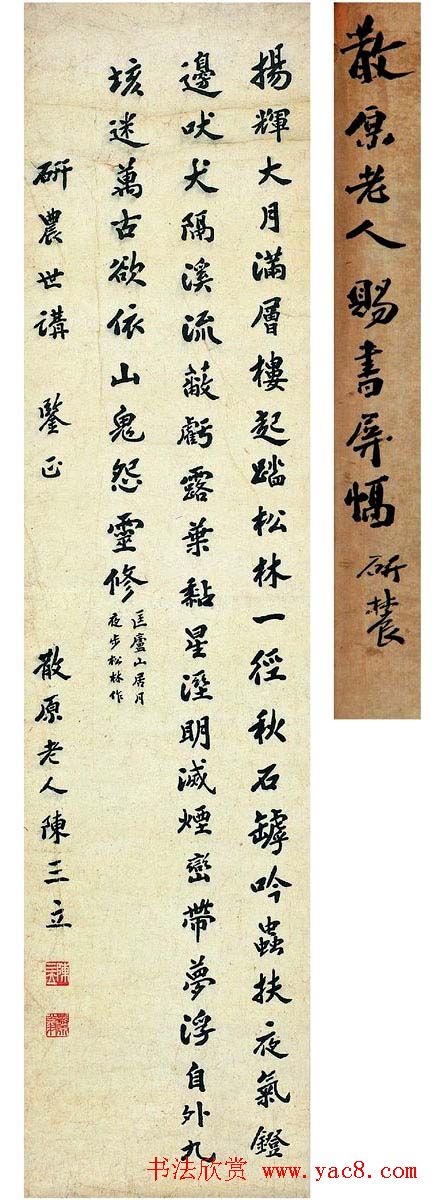 散原老人賜書屏幅
研農
揚輝大月滿層樓起踏松林一徑秋石罅吟蟲扶夜氣鐙
邊吠犬隔溪流蔽虧露葉黏星溼明滅煙巒帶夢浮自外九
垓迷萬古欲依山鬼怨靈修
匡廬山居月
夜步松林作
研農世講 鑒正 散原老人陳三立
书法欣赏 www.yac8.com